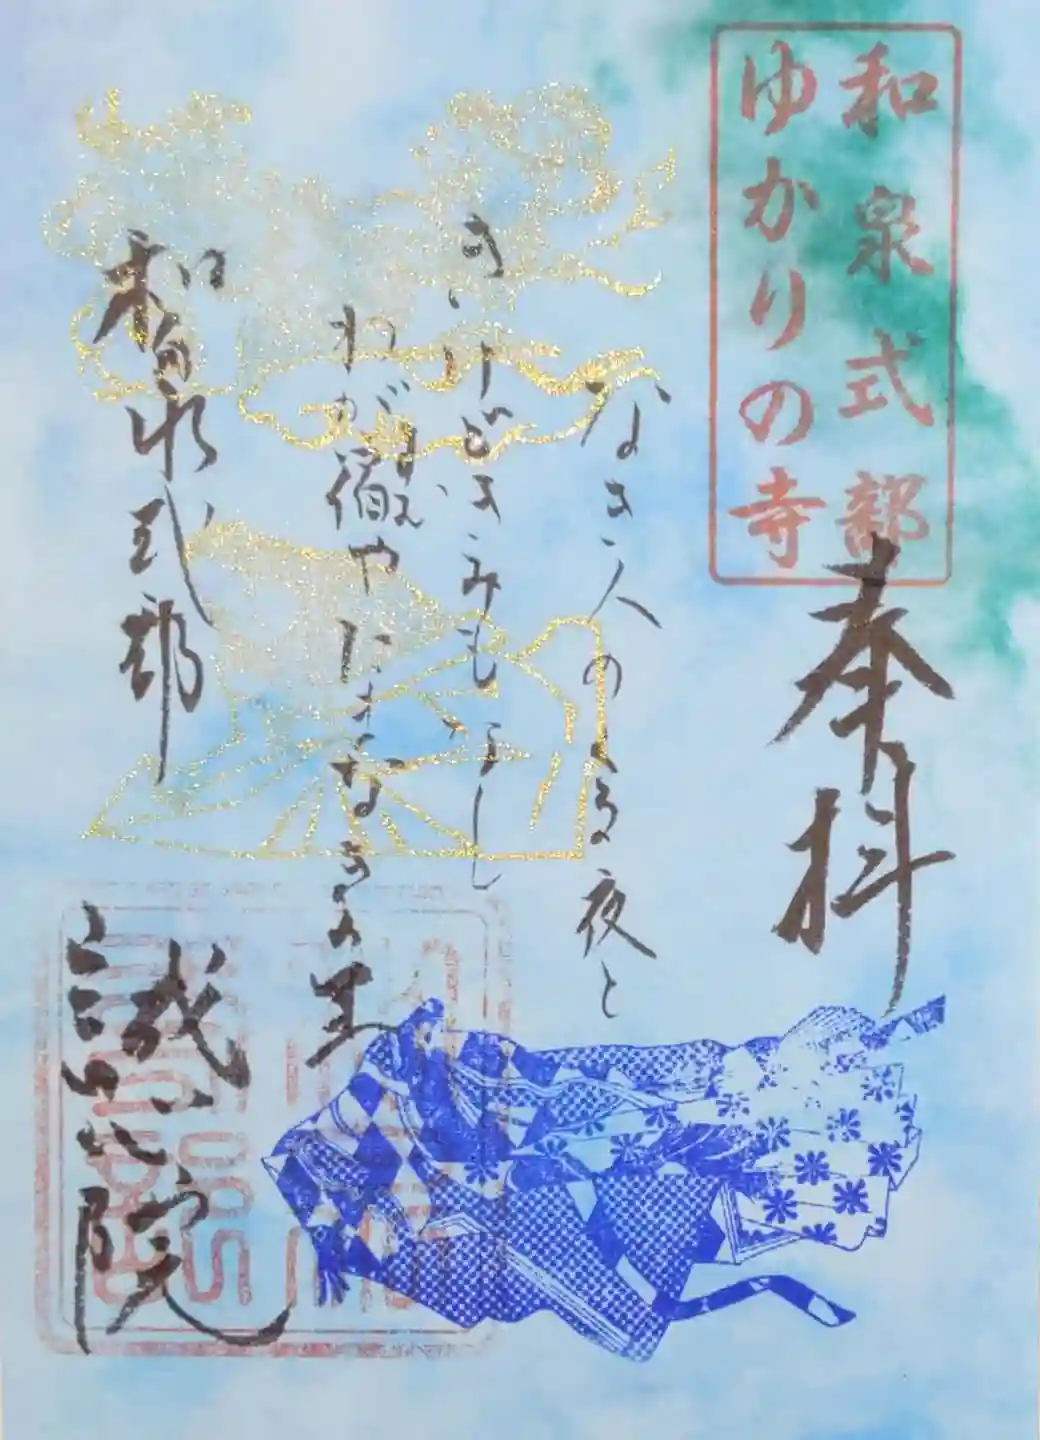 和泉式部
ゆかりの寺
奉拝
なき人のくる夜と
きけどきみもなし
わが宿やたまなきの里
和泉式部
誠心院